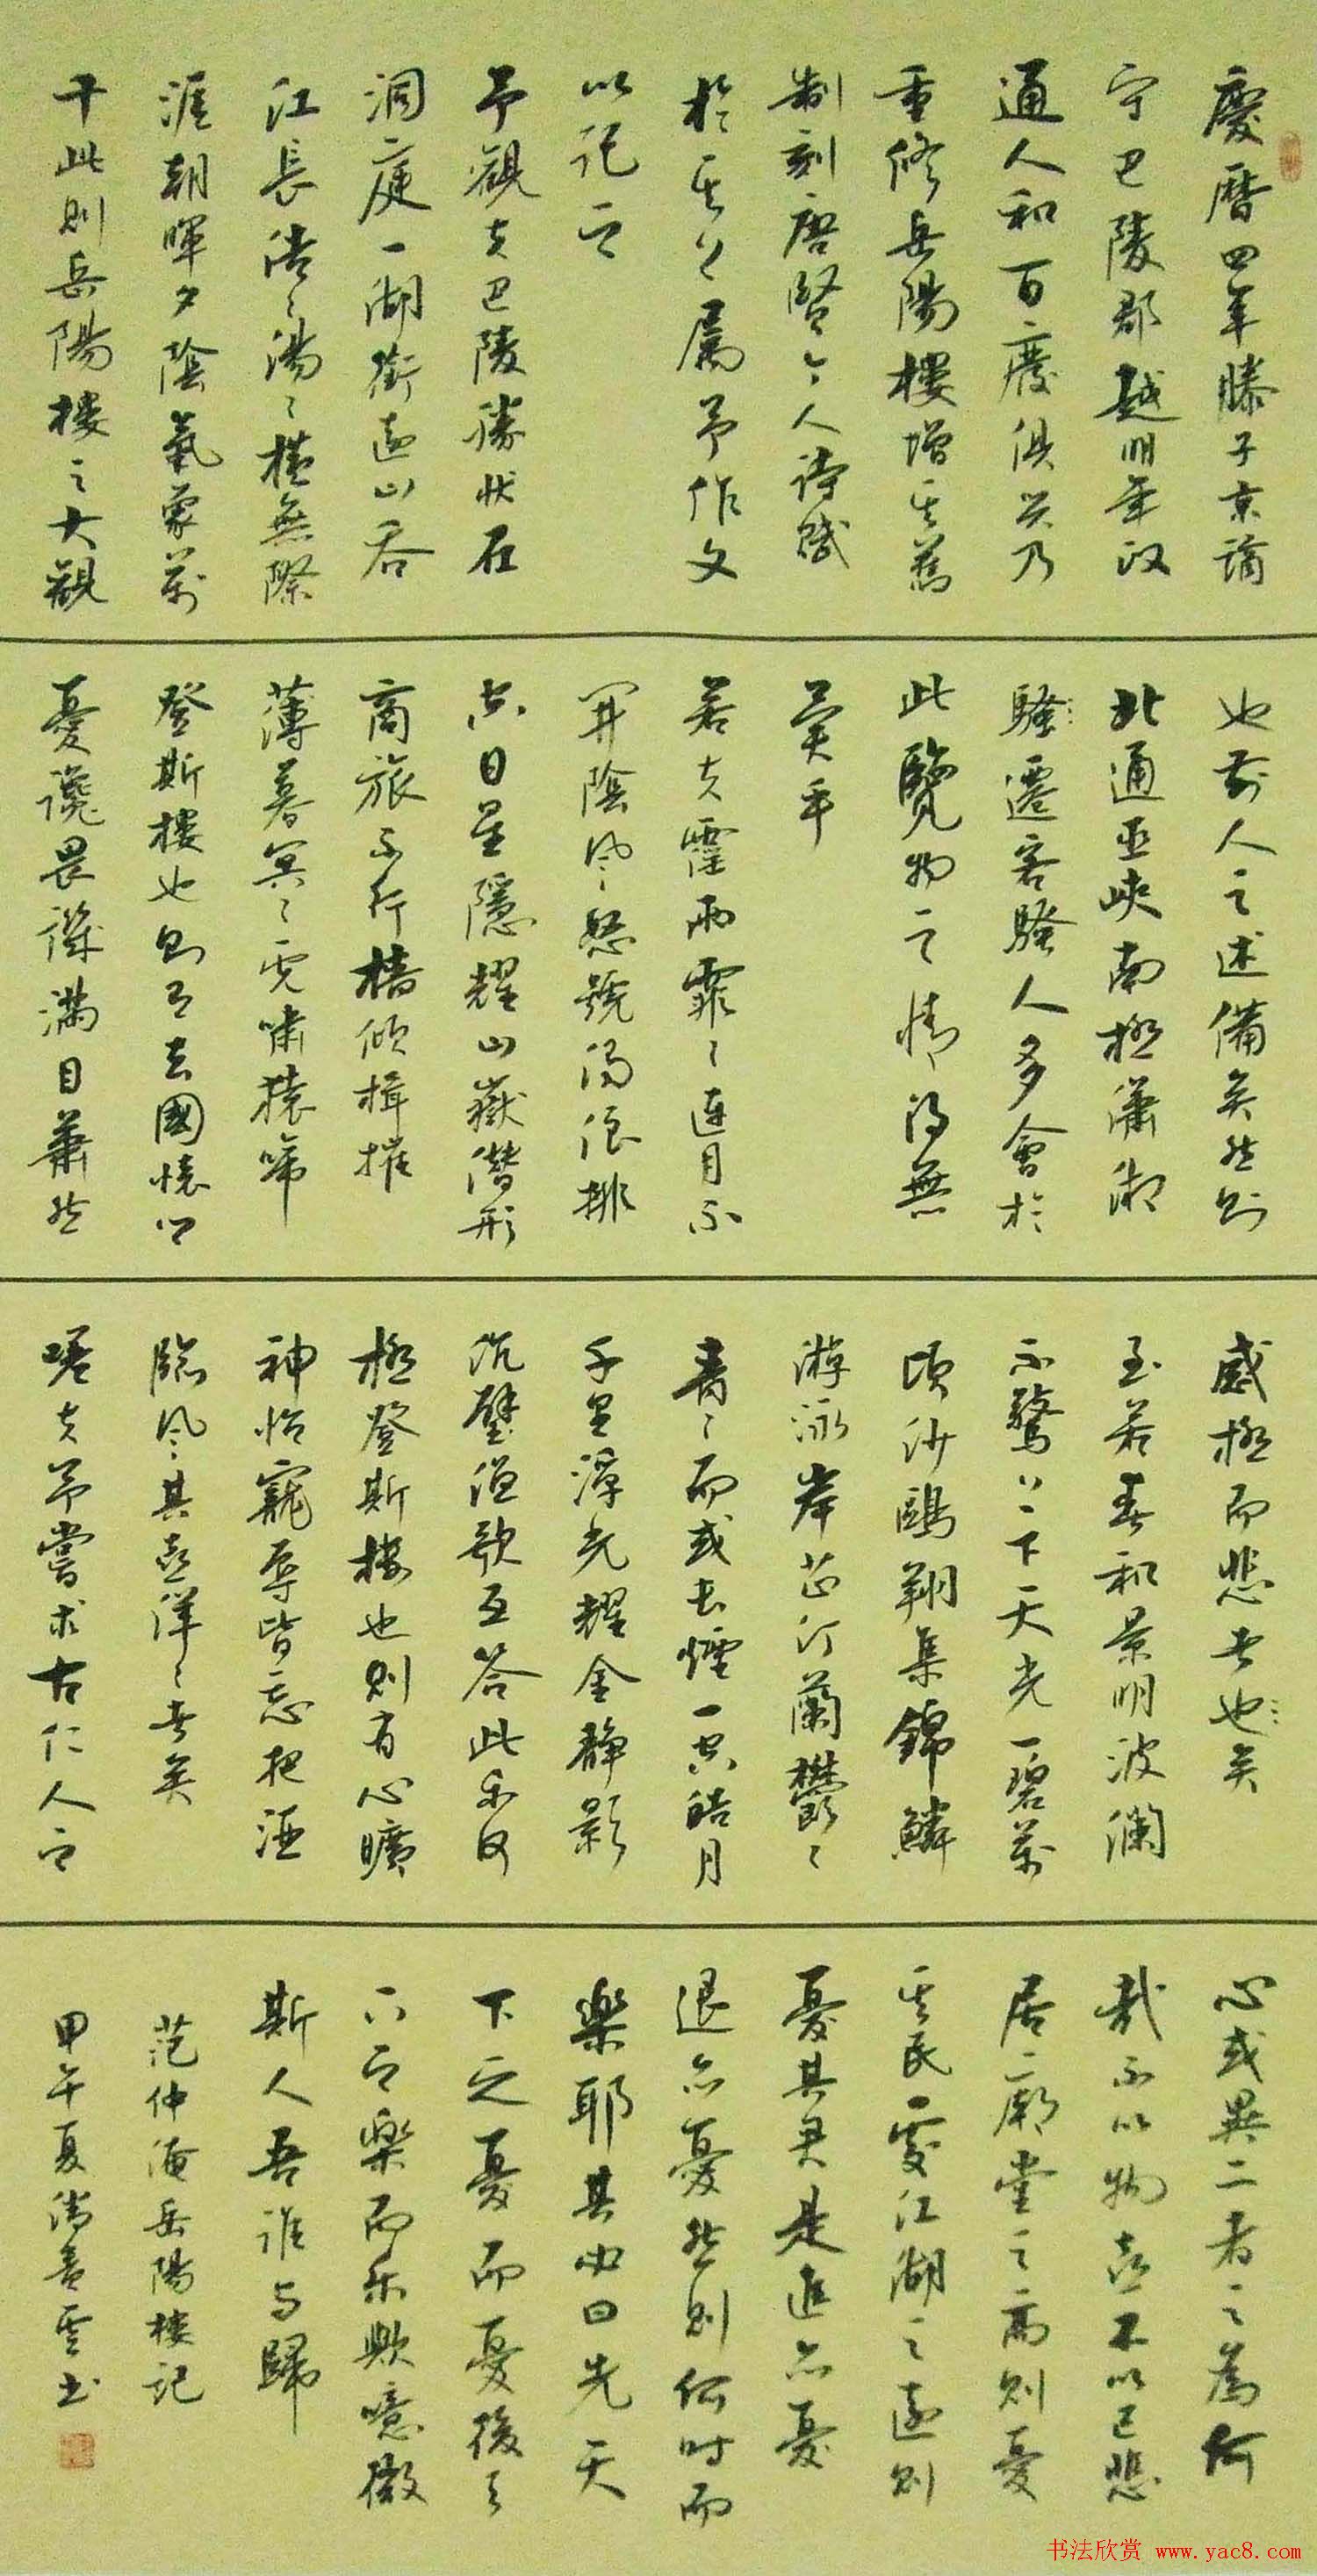 慶暦四年滕子京謫
守巴陵郡越明年政
通人和百廢俱興乃
重修岳陽樓增其舊
制刻唐賢今人詩賦
於其上屬予作文
以記之
予觀夫巴陵勝狀在
洞庭一湖銜遠山吞
江長浩々湯々橫無際
涯朝暉夕陰氣象萬
千此則岳陽樓之大觀
也前人之述備矣然則
北通巫峽南極瀟湘
騷遷客騷人多會於
此覽物之情得無
異乎
若夫霪雨霏々連月不
開陰風怒號濁浪排
空日星隱耀山嶽潛形
商旅不行檣傾楫摧
薄暮冥々虎嘯猿啼
登斯樓也則有去國懷鄉
憂讒畏譏滿目蕭然
感極而悲者也矣
至若春和景明波瀾
不驚上下天光一碧萬
頃沙鷗翔集錦鱗
游泳岸芷汀蘭鬱々
青々而或長煙一空皓月
千里浮光耀金靜影
沉璧漁歌互答此樂何
極登斯樓也則有心曠
神怡寵辱皆忘把酒
臨風其喜洋々者矣
嗟夫予嘗求古仁人之
心或異二者之為何
哉不以物喜不以己悲
居廟堂之高則憂
其民處江湖之遠則
憂其君是進亦憂
退亦憂然則何時而
樂耶其必曰先天
下之憂而憂後天
下之樂而樂歟噫微
斯人吾誰與歸
范仲淹岳陽樓記
甲午夏雲书
书法欣赏 www.yac8.com